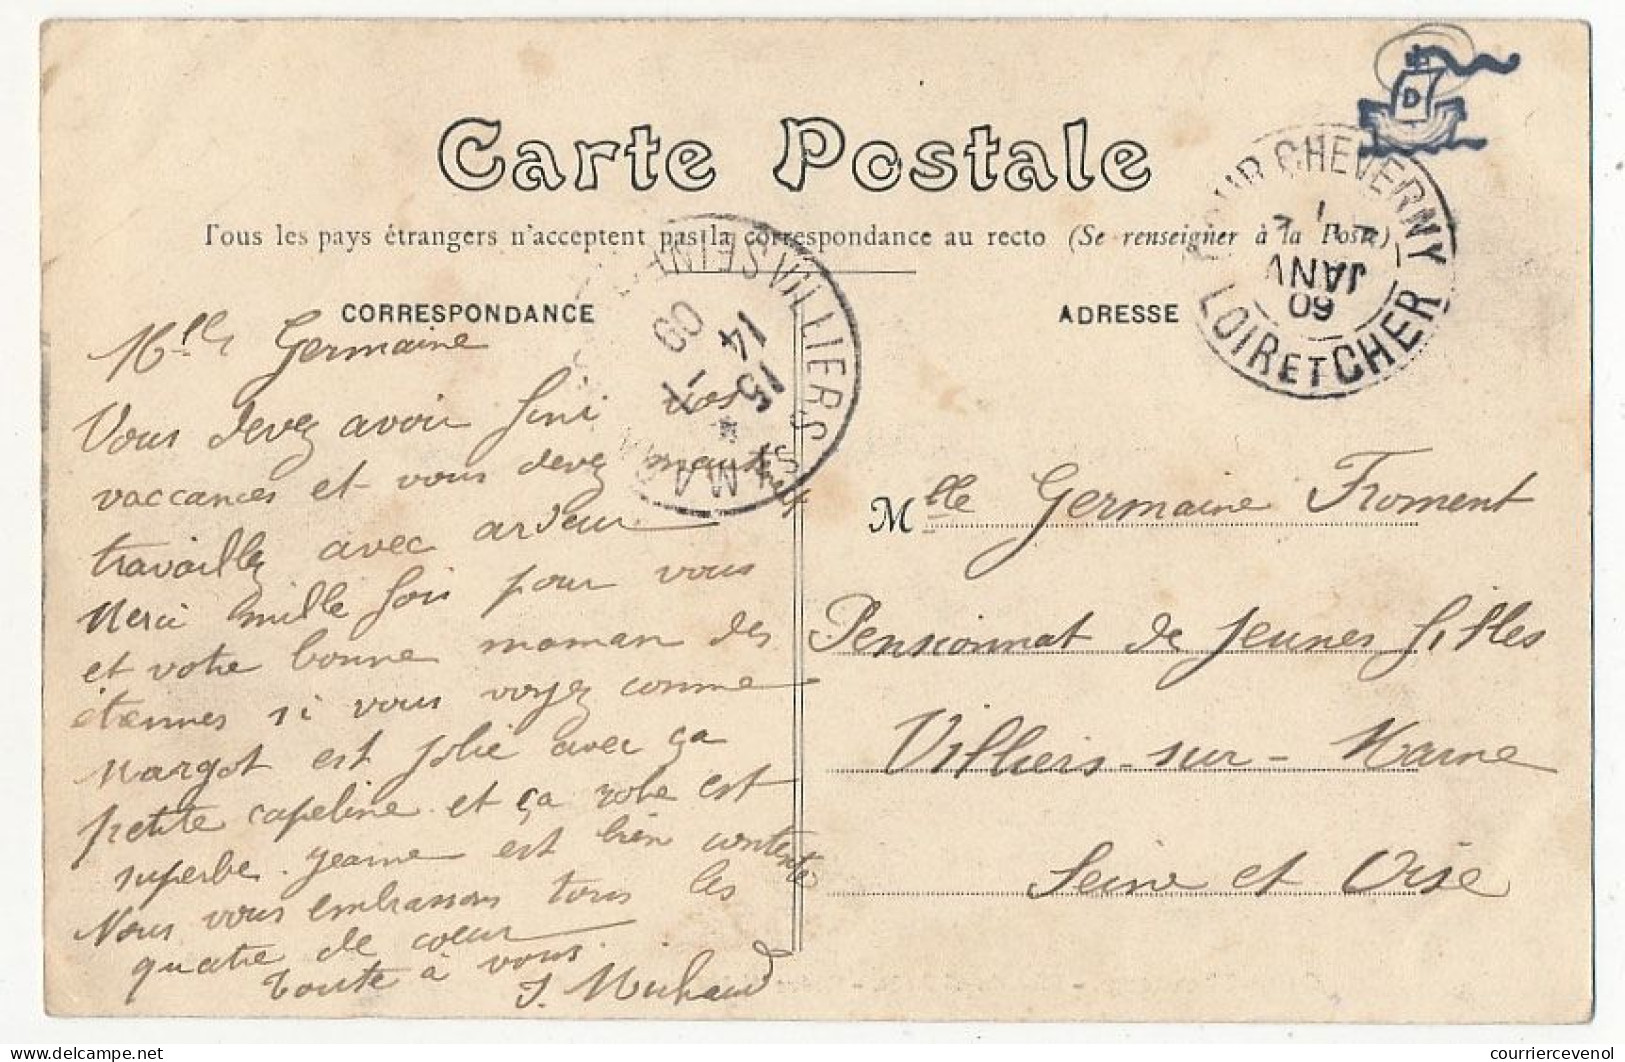 Carte Postale
Tous les pays étrangers n'acceptent pas la correspondance au recto (Se renseigner à la Poste)
CORRESPONDANCE
ADRESSE
COUR CHEVERNY
JANV
09
LOIR ET CHER
D
VILLIERS S. MARNE
SEINE
14
15
1
09
Mlle Germaine
Vous devez avoir fini vos
vaccances et vous devez
travaillez avec ardeur.
Merci mille fois pour vous
et votre bonne maman des
étrennes si vous voyez comme
Margot est jolie avec ça
petite capeline et ça robe est
superbe. Jeanne est bien contente
Nous vous embrassons tous les
quatre de coeur
Toute à vous
J. Michaud
Mlle Germaine Froment
Pensionnat de jeunes filles
Villiers-sur-Marne
Seine et Oise
courriercevenol
delcampe.net